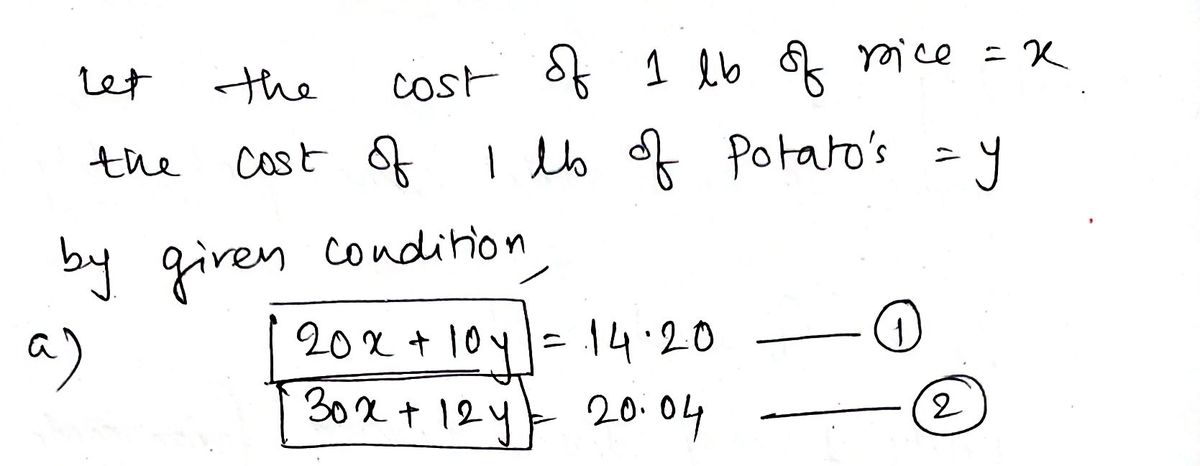 let the cost of 1 lb of rice = x
the cost of 1 lb of Potato's = y
by given condition,
a) 20x + 10y = 14.20 — ①
30x + 12y = 20.04 — ②